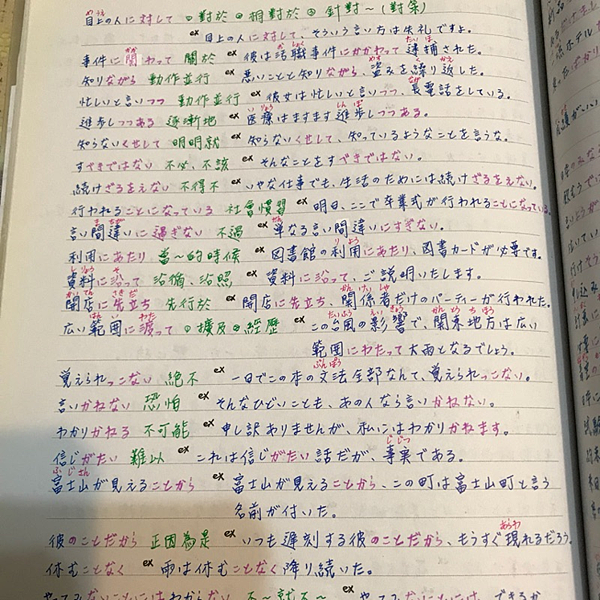 目上の人に対して ①對於②相對於③針對~(對策)
ex 目上の人に対して、そういう言い方は失礼ですよ。
事件に関わって 關於 ex 彼は汚職事件にかかわって逮捕された。
知りながら 動作並行 ex 悪いことと知りながら、盗みを繰り返した。
忙しいと言いつつ 動作並行 ex 彼女は忙しいと言いつつ、長電話をしている。
進歩しつつある 逐漸地 ex 医療はますます進歩しつつある。
知らないくせして 明明就 ex 知らないくせして、知っているようなことを言うな。
すべきではない 不必、不該 ex そんなことをすべきではない。
続けざるをえない 不得不 ex いやな仕事でも、生活のためには続けざるをえない。
行われることになっている 社會慣習 ex 明日、ここで卒業式が行われることになっている。
言い間違いに過ぎない 不過 ex 単なる言い間違いにすぎない。
利用にあたり 當~的時候 ex 図書館の利用にあたり、図書カードが必要です。
資料に沿って 沿循、沿照 ex 資料に沿って、ご説明いたします。
開店に先立ち 先行於 ex 開店に先立ち、関係者だけのパーティーが行われた。
広い範囲に渡って ①擴及②經歷 ex この台風の影響で、関東地方は広い
範囲にわたって大雨となるでしょう。
覚えられっこない 絶不 ex 一日でこの本の文法全部なんて、覚えられっこない。
言いかねない 恐怕 ex そんなひどいことも、あの人なら言いかねない。
わかりかねる 不可能 ex 申し訳ありませんが、私にはわかりかねます。
信じがたい 難以 ex これは信じがたい話だが、事実である。
富士山が見えることから ex 富士山が見えることから、この町は富士山町と言う
名前が付いた。
彼のことだから 正因為是 ex いつも遅刻する彼のことだから、もうすぐ現れるだろう
休むことなく ex 雨は休むことなく降り続いた。
やってみないことにはわからない 不~就不~ ex やってみないことには、できるか